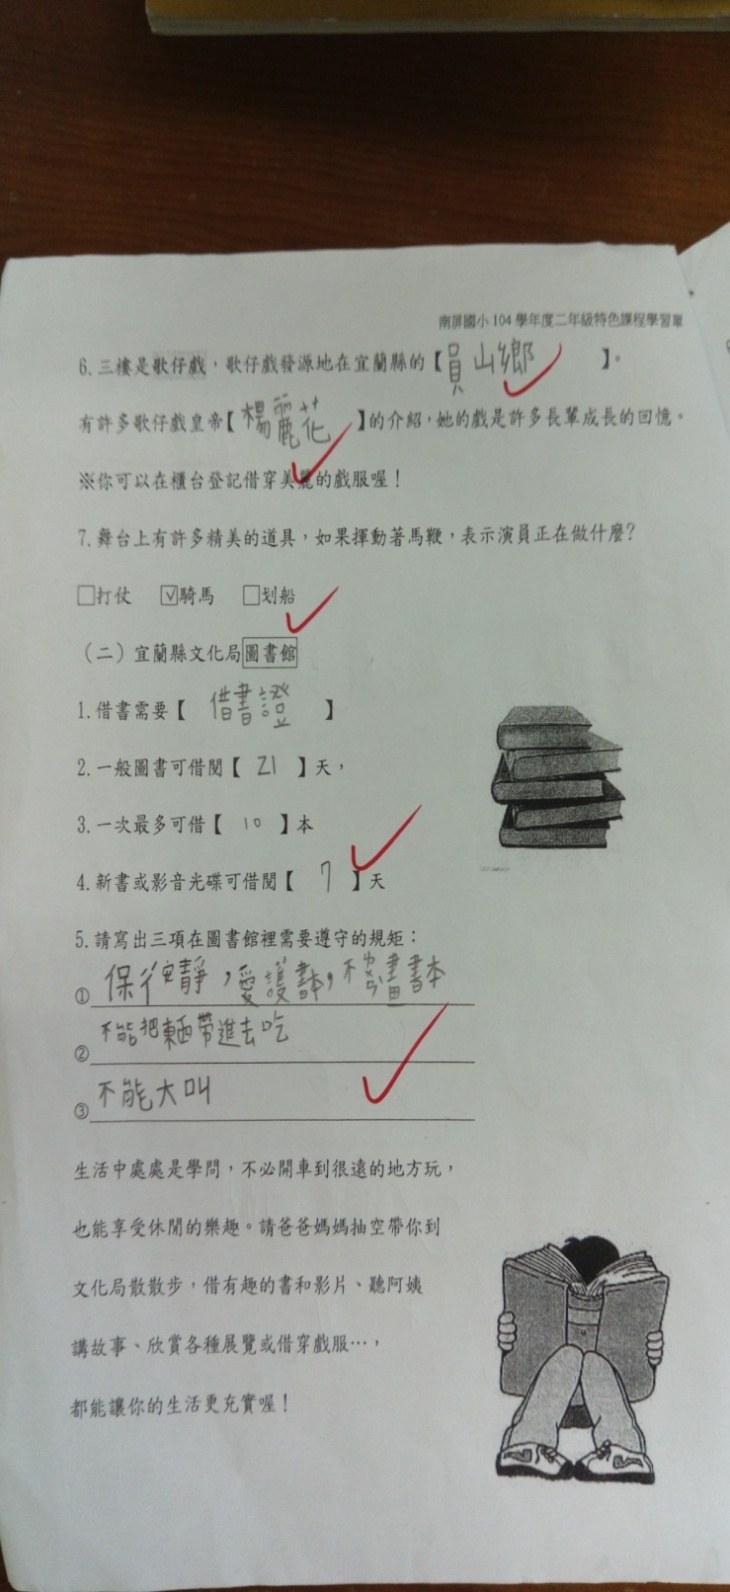 南屏國小104學年度二年級特色課程學習單
6.三樓是歌仔戲，歌仔戲發源地在宜蘭縣的【員山鄉】。
有許多歌仔戲皇帝【楊麗花】的介紹，她的戲是許多長輩成長的回憶。
※你可以在櫃台登記借穿美麗的戲服喔！
7.舞台上有許多精美的道具，如果揮動著馬鞭，表示演員正在做什麼？
□打仗 ☑騎馬 □划船
（二）宜蘭縣文化局圖書館
1.借書需要【借書證】
2.一般圖書可借閱【21】天，
3.一次最多可借【10】本
4.新書或影音光碟可借閱【7】天
5.請寫出三項在圖書館裡需要遵守的規矩：
①保安靜，愛護書本，不畫書本
②不能把東西帶進去吃
③不能大叫
生活中處處是學問，不必開車到很遠的地方玩，
也能享受休閒的樂趣。請爸爸媽媽抽空帶你到
文化局散散步，借有趣的書和影片、聽阿姨
講故事、欣賞各種展覽或借穿戲服…，
都能讓你的生活更充實喔！